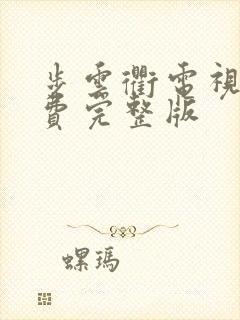 步雲衢電視
費完整版
螺瑪